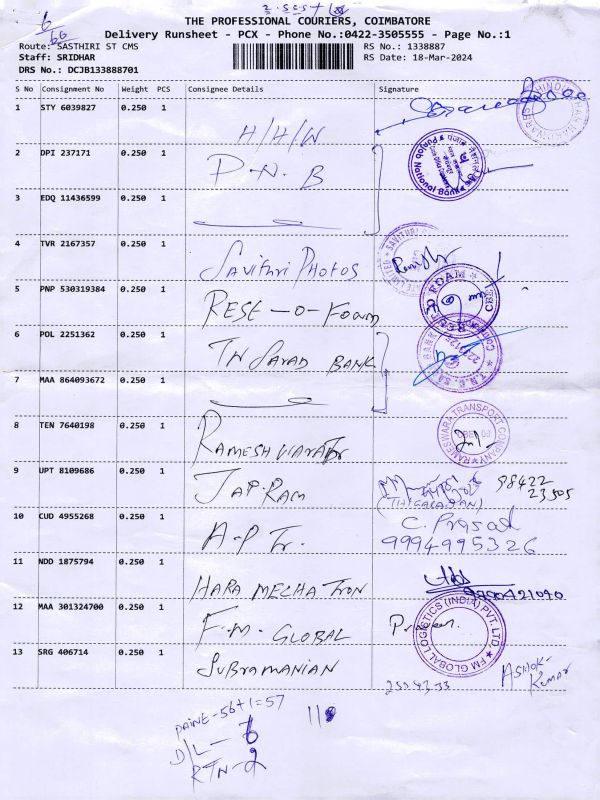 THE PROFESSIONAL COURIERS, COIMBATORE
Delivery Runsheet - PCX - Phone No.:0422-3505555 - Page No.:1
Route: SASTHIRI ST CMS
RS No.: 1338887
Staff: SRIDHAR
RS Date: 18-Mar-2024
DRS No.: DCJB133888701
S No Consignment No Weight PCS Consignee Details Signature
1 STY 6039827 0.250 1
H/H/W
2 DPI 237171 0.250 1
P.N.B
Punjab National Bank
3 EDQ 11436599 0.250 1
4 TVR 2167357 0.250 1
SAVITHRI PHOTOS
5 PNP 530319384 0.250 1
REST-O-FOAM
6 POL 2251362 0.250 1
BANK
7 MAA 864093672 0.250 1
8 TEN 7640198 0.250 1
RAMESHWARA Tr
RAMESWARA TRANSPORT COMPANY
9 UPT 8109686 0.250 1
JAP.RAM
98422
23505
(THIAGARAJAN)
10 CUD 4955268 0.250 1
A.P Tr.
C. Prasad
9994995326
11 NDD 1875794 0.250 1
HARA MECHATRON
12 MAA 301324700 0.250 1
F.M. GLOBAL
FM GLOBAL LOGISTICS (INDIA) PVT. LTD.
13 SRG 406714 0.250 1
SUBRAMANIAN
ASHOK
KUMAR
56+1=57
D/L - 6
RTN - 2